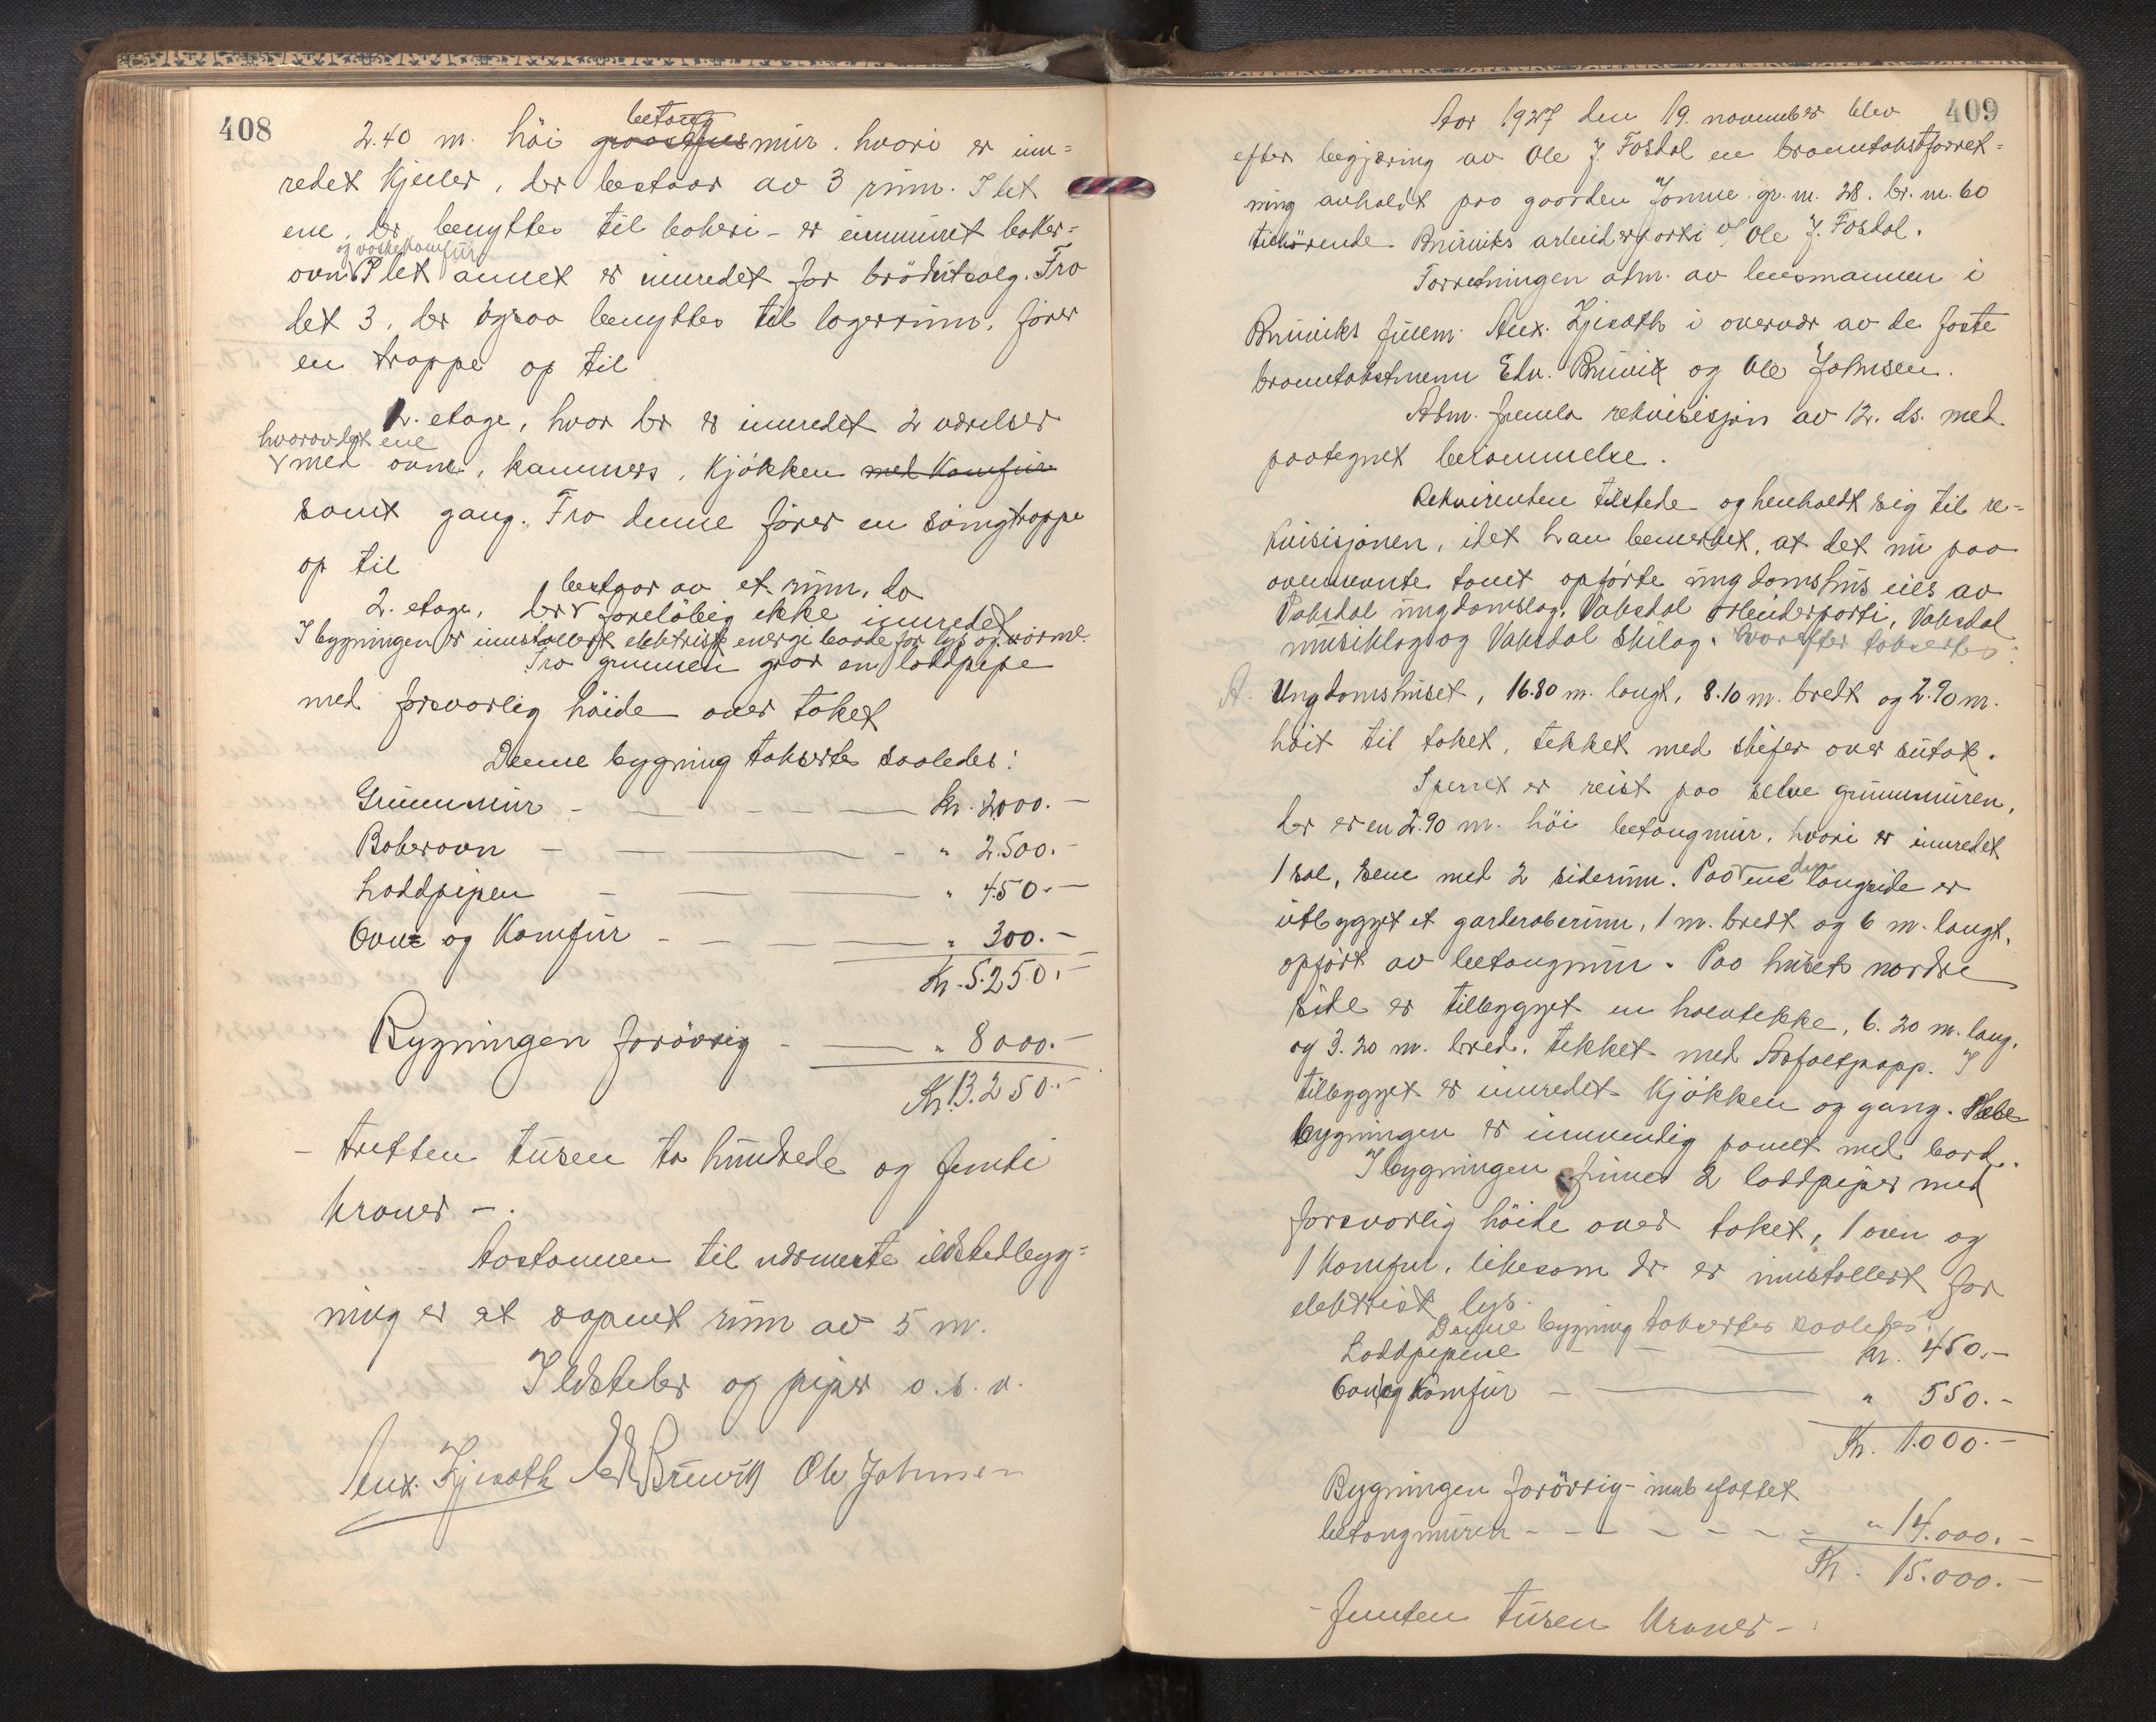 408
betong
2.40 m. höi graastensmur. hvori er inn=
redet kjeller, der bestaar av 3 rum. I det
ene, der benyttes til bakeri - er innmuret baker=
og vaskekomfur
ovn. I det annet er innredet for brödutsalg. Fra
det 3. der ogsaa benyttes til lagerrum, förer
en trappe op til
1. etage, hvor der er innredet 2 værelser
hvorav det ene
med ovn, kammers, kjökken med komfur
samt gang. Fra denne förer en svingtrappe
op til
bestaar av et rum, da
2. etage, der foreløbig ikke innredet
I bygningen er innstallert elektrisk energi baade for lys og varme.
Fra grunnen graar en loddpipe
med forsvarlig höide over taket
Denne bygning takseres saaledes:
Grunnmur - — - - — kr. 2000.-
Bakerovn - — - " 2.500.-
Loddpipen - — " 450.-
Ovne og Komfur - - — " 300.-
Kr. 5.250.-
Bygningen forövrig - — " 8000.-
Kr. 13.250.-
- tretten tusen to hundrede og femti
kroner -.
Avstannen til nærmeste ildstedbyg=
ning er et aapent rum av 5 m.
Ildsteder og piper o.s.v.
Aux. Gjerath Edv Bruvik Ole Johnsen
409
Aar 1927 den 19. november blev
efter begjæring av Ole J. Fosdal en branntakstforret=
ning avholdt paa gaarden Jamne gr. nr. 28. br. nr. 60
tilhörende Bruviks arbeiderparti v/ Ole J. Fosdal.
Forretningen adm. av lensmannen i
Bruviks fullm. Aux. Gjerath i overvær av de faste
branntakstmenn Edv. Bruvik og Ole Johnsen.
Adm. fremla rekvisisjon av 12. ds. med
paategnet berammelse.
Rekvirenten tilstede og henholdt sig til re=
kvisisjonen, idet han bemerket, at det nu paa
ovennevnte tomt opförte ungdomshus eies av
Vaksdal ungdomslag, Vaksdal arbeiderparti, Vaksdal
musiklag og Vaksdal Skilag. Hvorefter takseres:
A. Ungdomshuset, 16.80 m. langt, 8.10 m. bredt og 2.90 m.
höit til taket, tekket med skifer over sutak.
Sperret er reist paa selve grunnmuren,
der er en 2.90 m. höi betongmur, hvori er innredet
1 sal, scene med 2 siderum. Paa den ene langside er
utbygget et garderoberum, 1 m. bredt og 6 m. langt,
opfört av betongmur. Paa husets nordre
side er tilbygget en halvtekke, 6.20 m. lang,
og 3.20 m. bred, tekket med Asfaltpapp. I
tilbygget er innredet kjökken og gang. Hele
bygningen er innvendig panelt med bord.
I bygningen finnes 2 loddpiper med
forsvarlig höide over taket, 1 ovn og
1 komfur, likesom der er innstallert for
elektrisk lys.
Denne bygning takseres saaledes:
Loddpipene - - — kr. 450.-
Ovn og Komfur - — " 550.-
Kr. 1.000.-
Bygningen forövrig - innbefattet
betongmuren - - - - - - - " 14.000.-
Kr. 15.000.-
- femten tusen kroner -